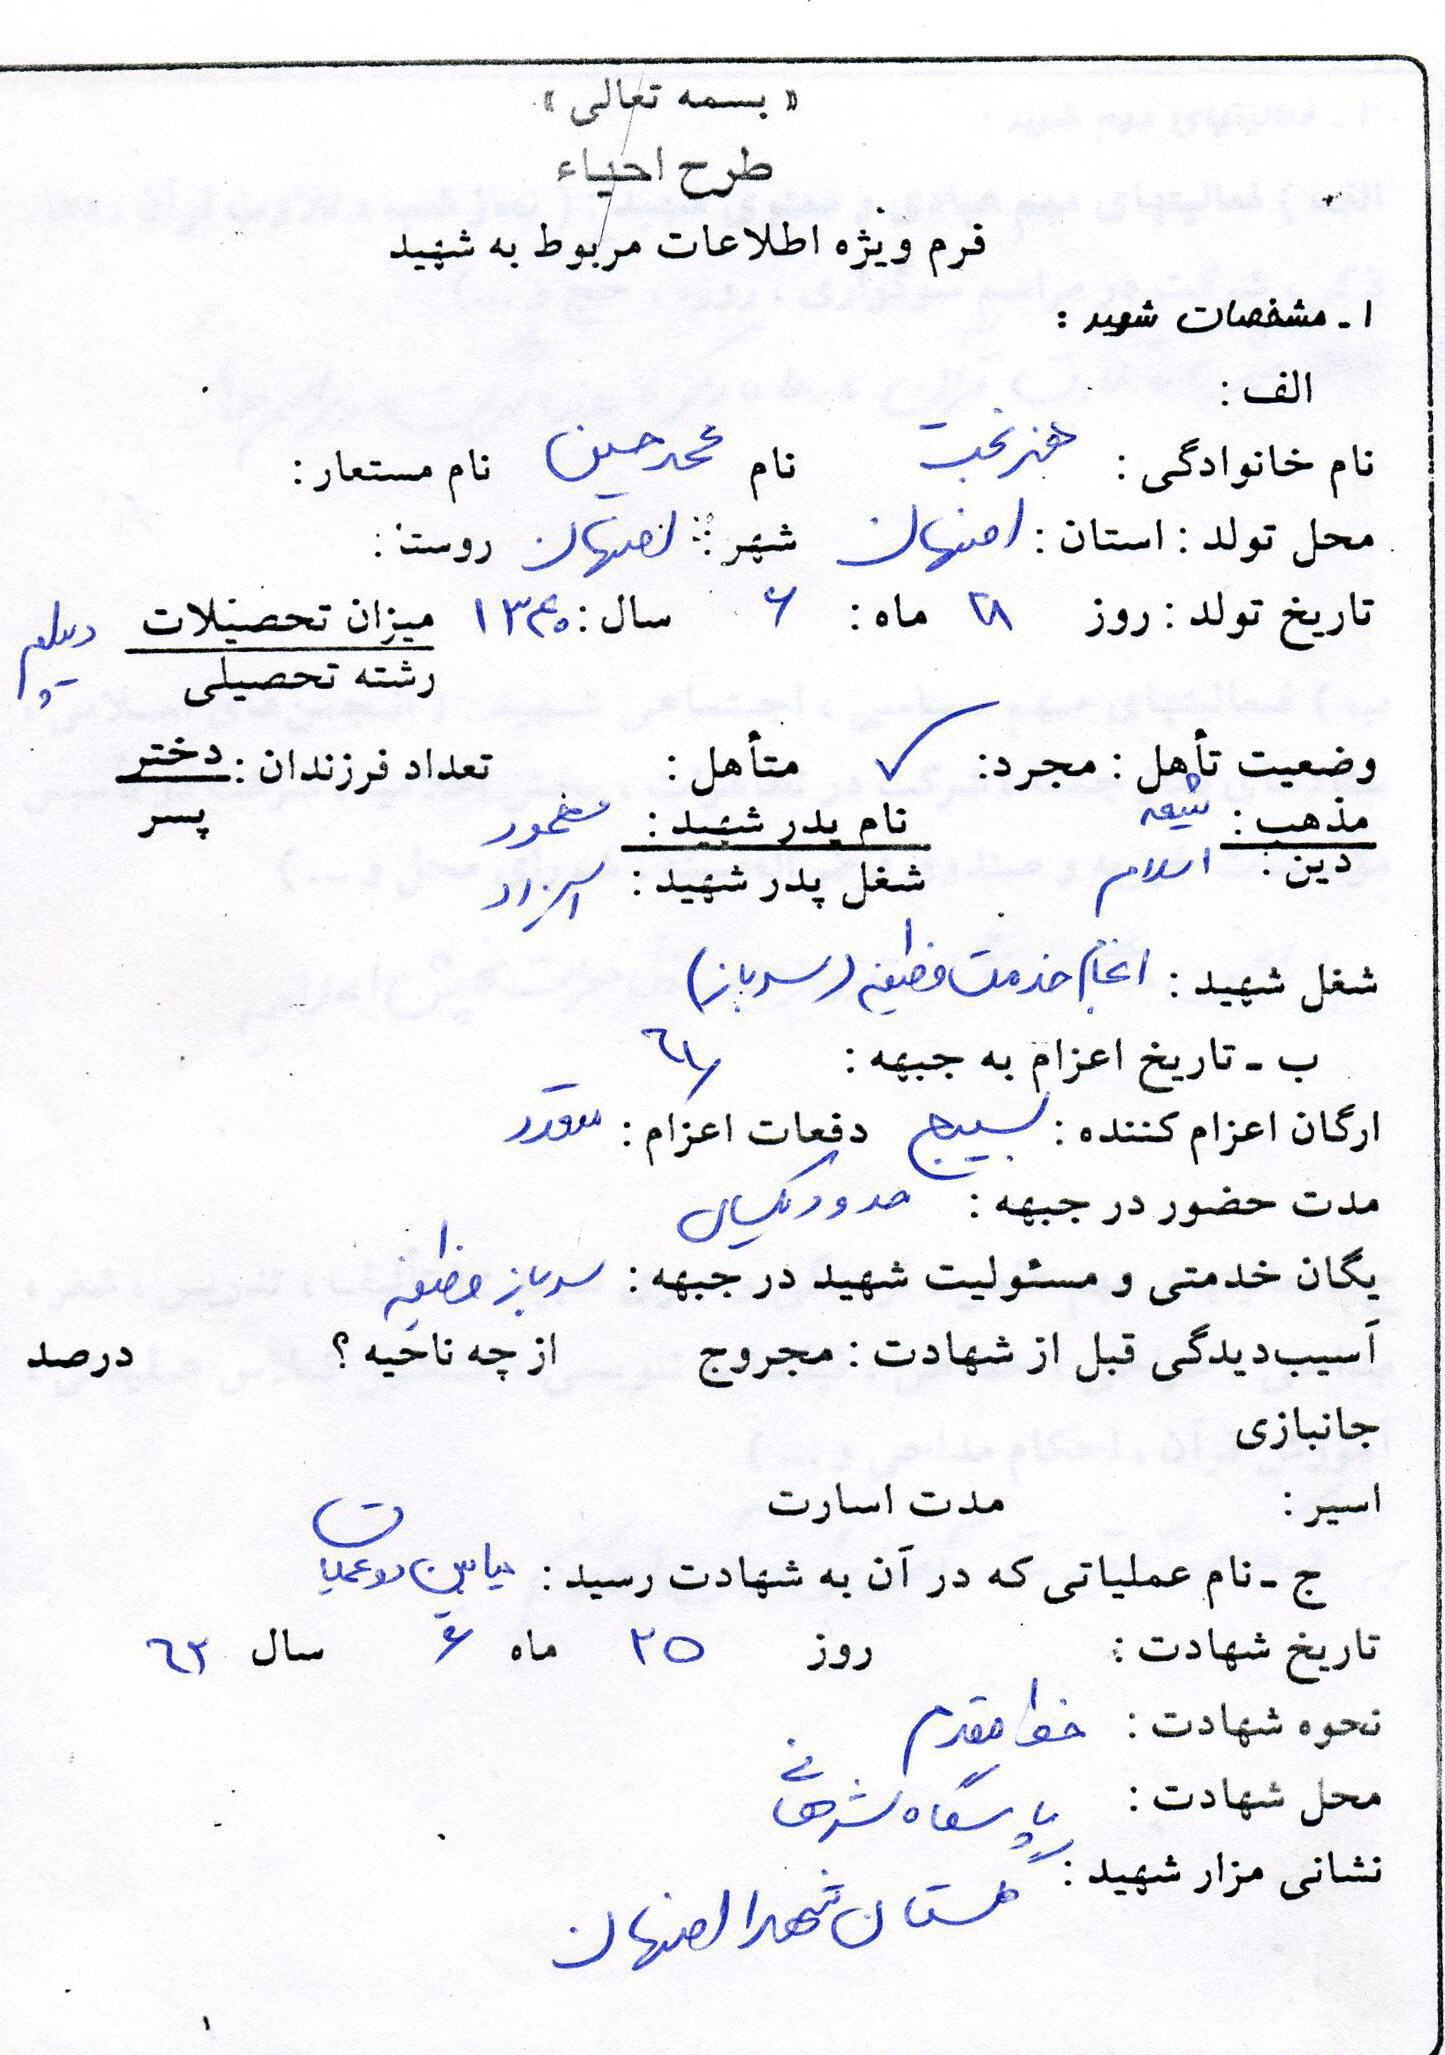 « بسمه تعالی »
طرح احیاء
فرم ویژه اطلاعات مربوط به شهید
۱ ـ مشخصات شهید :
الف :
نام خانوادگی : هنربخت نام محمدحسین نام مستعار :
محل تولد : استان : اصفهان شهر : اصفهان روستا :
تاریخ تولد : روز ۲۸ ماه : ۶ سال : ۱۳۴۰ میزان تحصیلات دیپلم
رشته تحصیلی
وضعیت تأهل : مجرد : ✓ متأهل : تعداد فرزندان : دختر
مذهب : شیعه نام پدر شهید : پسر
دین : اسلام شغل پدر شهید :
شغل شهید : انجام خدمت وظیفه (سرباز)
ب ـ تاریخ اعزام به جبهه : ۶۱
ارگان اعزام کننده : بسیج دفعات اعزام :
مدت حضور در جبهه : حدود یکسال
یگان خدمتی و مسئولیت شهید در جبهه : سرباز وظیفه
آسیب‌دیدگی قبل از شهادت : مجروح از چه ناحیه ؟ درصد
جانبازی
اسیر : مدت اسارت
ج ـ نام عملیاتی که در آن به شهادت رسید : مابین دو عملیات
تاریخ شهادت : روز ۲۵ ماه ۶ سال ۶۲
نحوه شهادت : خط مقدم
محل شهادت : پاسگاه شرهانی
نشانی مزار شهید :
گلستان شهدا اصفهان
۱